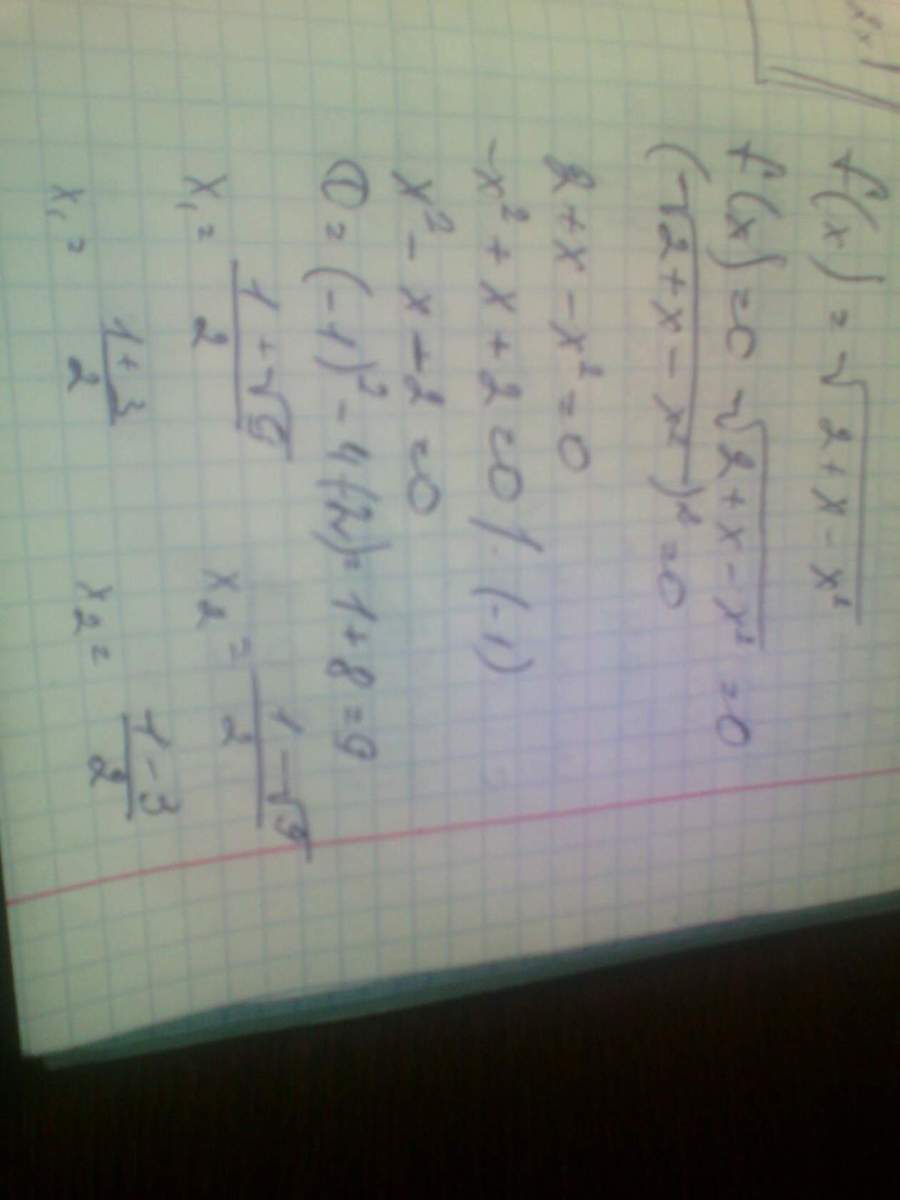 2x
f(x) = √2+x-x²
f(x)=0 √2+x-x² =0
(√2+x-x²)²=0
2+x-x²=0
-x²+x+2=0 /·(-1)
x²-x-2=0
D=(-1)²-4·(-2)=1+8=9
x₁= 1+√9/2 x₂= 1-√9/2
x₁= 1+3/2 x₂= 1-3/2